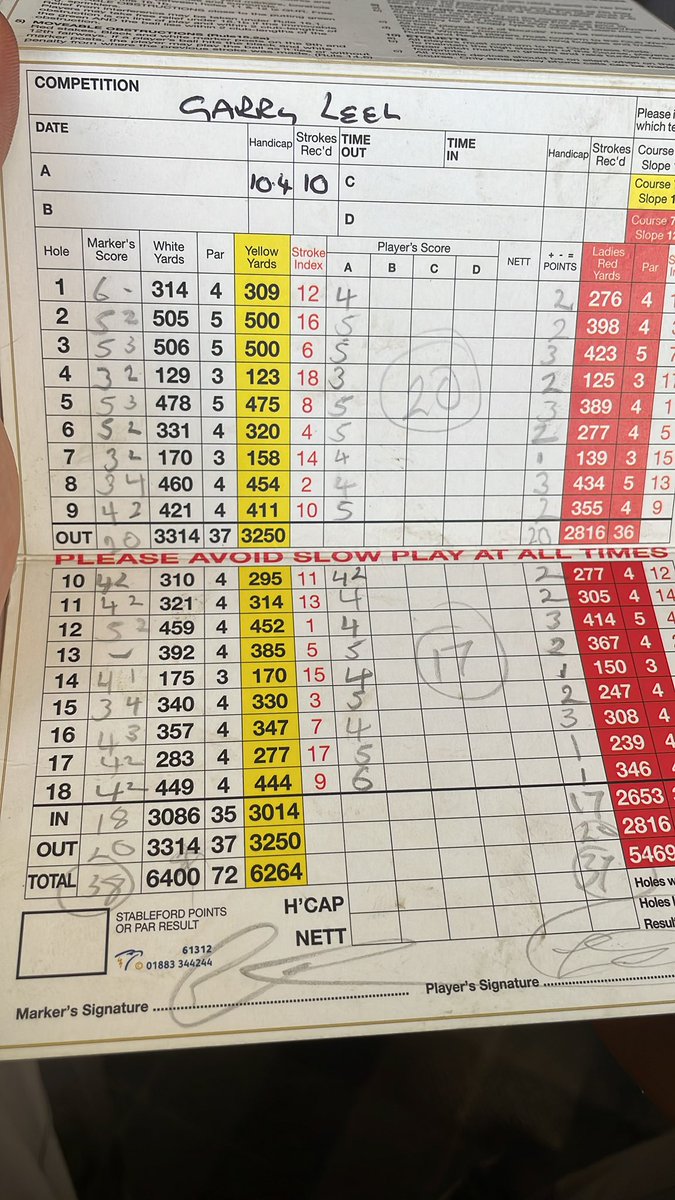 COMPETITION
GARRY LEEL
Please i
which te
DATE
Handicap Strokes Rec'd TIME OUT TIME IN Handicap Strokes Rec'd Course
Slope
A 10.4 10 C Course
Slope 1
B D Course 7
Slope 12
Hole Marker's Score White Yards Par Yellow Yards Stroke Index Player's Score NETT + - = POINTS Ladies Red Yards Par
A B C D
1 6 - 314 4 309 12 4 2 276 4
2 5 2 505 5 500 16 5 2 398 4
3 5 3 506 5 500 6 5 3 423 5
4 3 2 129 3 123 18 3 2 125 3 1
5 5 3 478 5 475 8 5 20 3 389 4 1
6 5 2 331 4 320 4 5 2 277 4 5
7 3 2 170 3 158 14 4 1 139 3 15
8 3 4 460 4 454 2 4 3 434 5 13
9 4 2 421 4 411 10 5 2 355 4 9
OUT 20 3314 37 3250 20 2816 36
PLEASE AVOID SLOW PLAY AT ALL TIMES
10 42 310 4 295 11 42 2 277 4 12
11 4 2 321 4 314 13 4 2 305 4 14
12 5 2 459 4 452 1 4 3 414 5 4
13 - 392 4 385 5 5 17 2 367 4
14 4 1 175 3 170 15 4 1 150 3
15 3 4 340 4 330 3 5 2 247 4
16 4 3 357 4 347 7 4 3 308 4
17 42 283 4 277 17 5 1 239 4
18 42 449 4 444 9 6 1 346
IN 18 3086 35 3014 17 2653
OUT 20 3314 37 3250 20 2816
TOTAL 38 6400 72 6264 37 5469
STABLEFORD POINTS
OR PAR RESULT
H'CAP
NETT
61312
© 01883 344244
Holes w
Holes l
Resul
Marker's Signature
Player's Signature